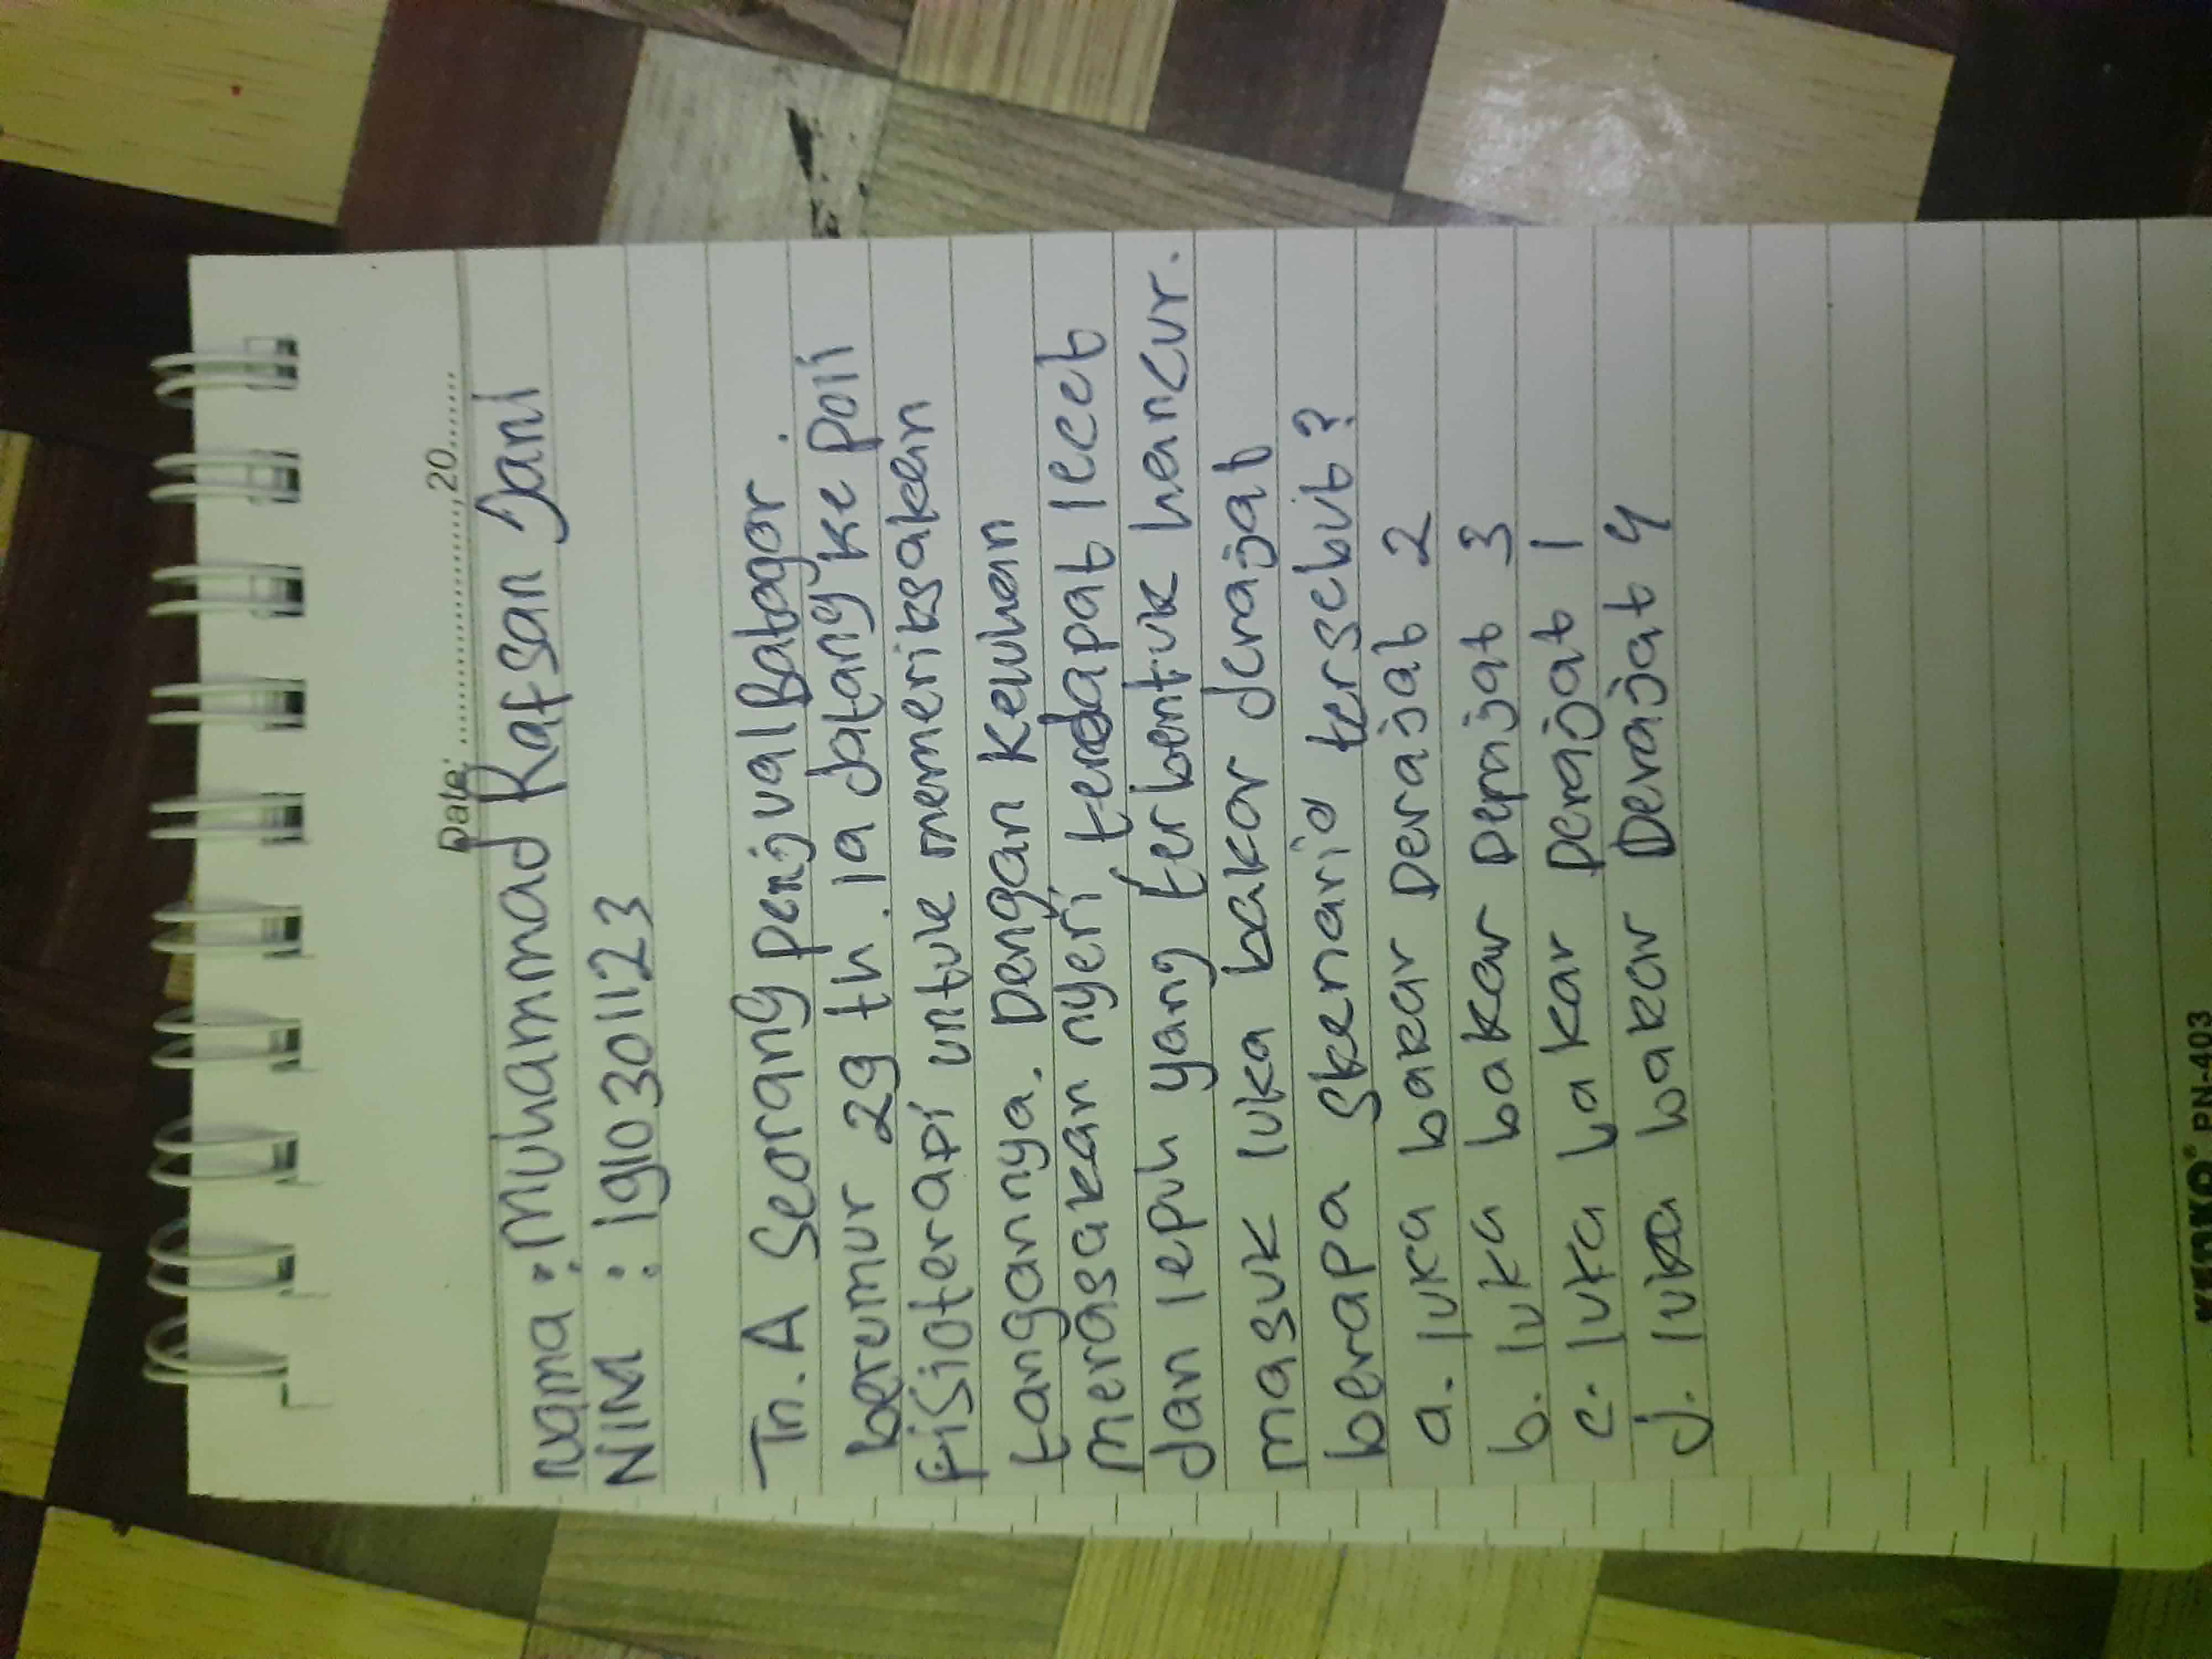 Date: ....................., 20.......
Nama : Muhammad Rafsan Jani
NIM : 1910301123
Tn. A Seorang penjual Batagor.
berumur 29 th. Ia datang ke poli
Fisioterapi untuk memeriksakan
tangannya. Dengan Keluhan
merasakan nyeri, terdapat lecet
dan lepuh yang terbentuk hancur.
masuk luka bakar derajat
berapa skenario tersebut?
a. luka bakar Derajat 2
b. luka bakar Derajat 3
c. luka bakar Derajat 1
d. luka bakar Derajat 4
KENKO® PN-403